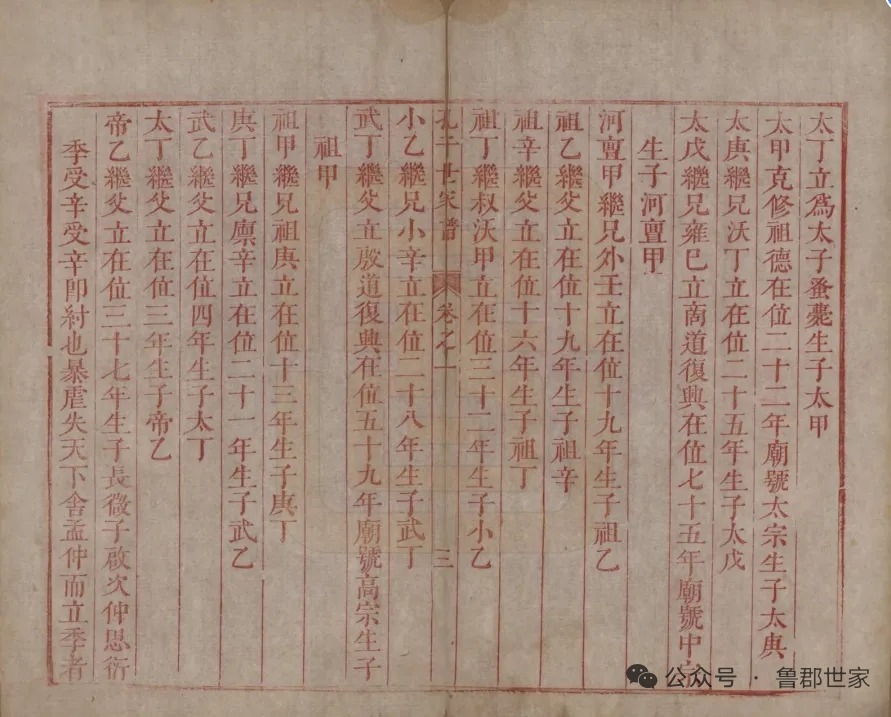 太丁立爲太子蚤薨生子太甲
太甲克修祖德在位二十二年廟號太宗生子太庚
太庚繼兄沃丁立在位二十五年生子太戊
太戊繼兄雍巳立啇道復興在位七十五年廟號中
生子河亶甲
河亶甲繼兄外壬立在位十九年生子祖乙
祖乙繼父立在位十九年生子祖辛
祖辛繼父立在位十六年生子祖丁
祖丁繼叔沃甲立在位三十二年生子小乙
孔子世家譜 卷之一 三
小乙繼兄小辛立在位二十八年生子武丁
武丁繼父立殷道復興在位五十九年廟號高宗生子
祖甲
祖甲繼兄祖庚立在位十三年生子庚丁
庚丁繼兄廪辛立在位二十一年生子武乙
武乙繼父立在位四年生子太丁
太丁繼父立在位三年生子帝乙
帝乙繼父立在位三十七年生子長微子啟次仲思衍
季受辛受辛即紂也暴虐失天下舍孟仲而立季者
公众号 · 鲁郡世家